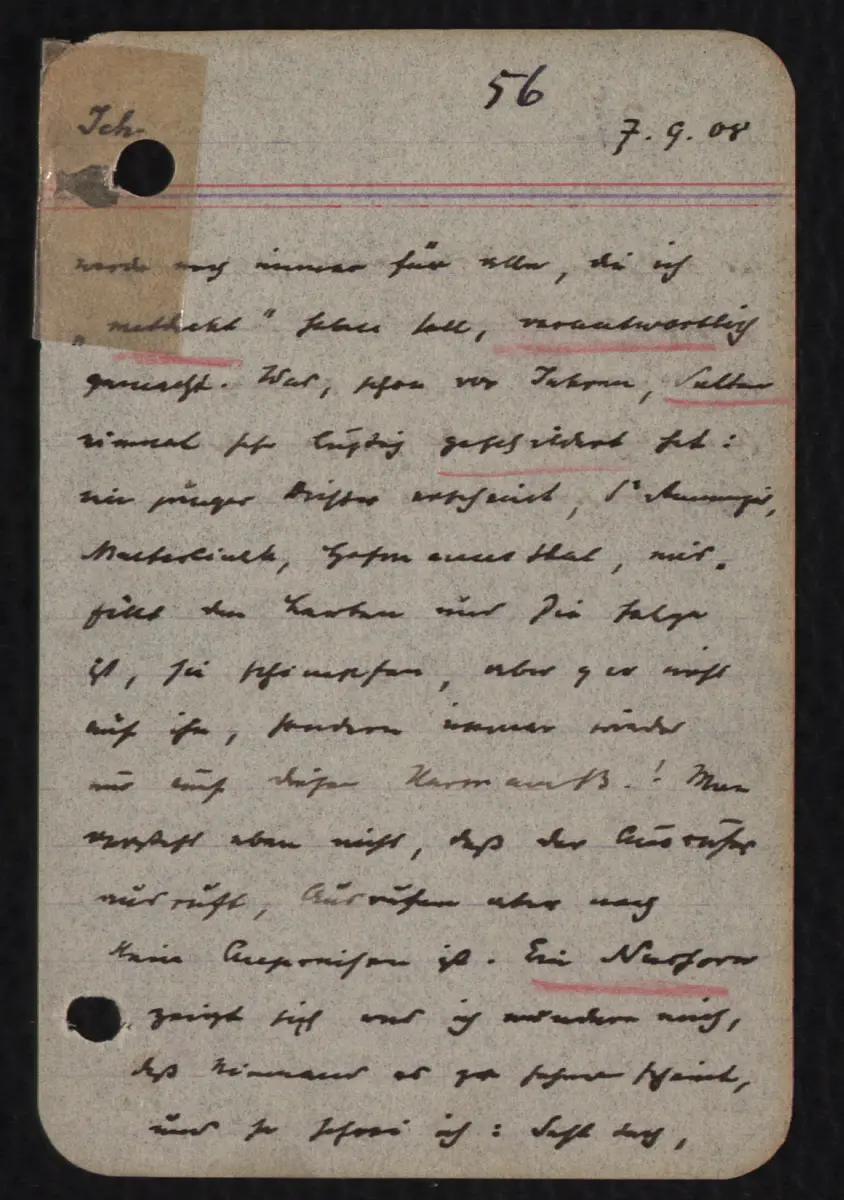 56
Ich
7. 9. 08
werde noch immer für alle, die ich
„entdeckt" haben soll, verantwortlich
gemacht. Was, schon vor Jahren, Salten
einmal sehr lustig geschildert hat:
ein junger Dichter erscheint, d'Annunzio,
Maeterlinck, Hofmannsthal, mis-
fällt den Leuten und die Folge
ist, sie schimpfen, aber gar nicht
auf ihn, sondern immer wieder
nur auf diesen Hermann B.! Man
versteht eben nicht, daß der Ausrufer
ausruft, Ausrufen aber noch
kein Anpreisen ist. Ein Nashorn
zeigt sich und ich wundere mich,
daß Niemand es zu sehen scheint,
und so schrei ich: Seht doch,